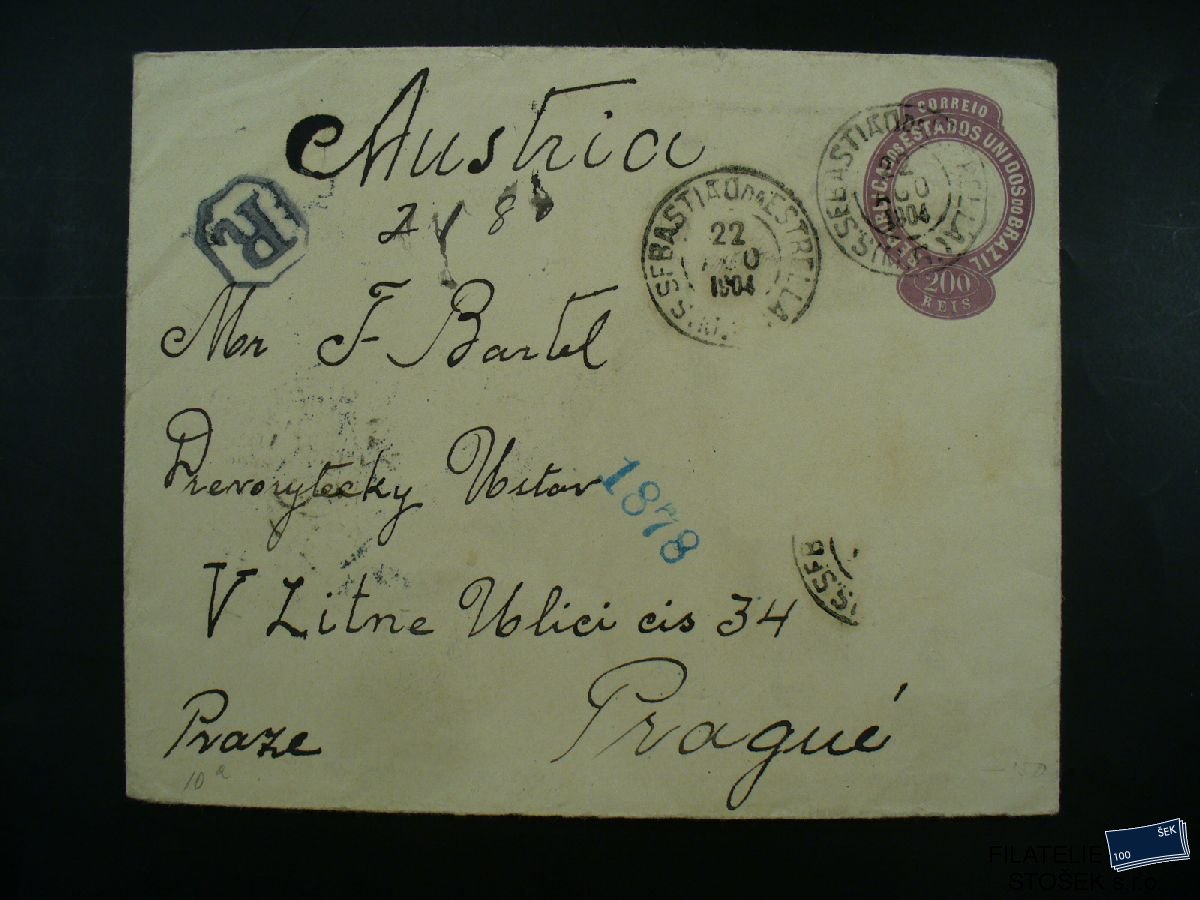 Austria
R
218
CORREIO
ESTADOS UNIDOS DO BRAZIL
200
REIS
S. SEBASTIÃO DA ESTRELLA
22
1904
1904
Mr F Bartel
Prevorytecky Ustav
1878
S. SEB
V Litne Ulici cis 34
Praze
Pragué
10 a
150
100 ŠEK
FILATELIE
STOŠEK s.r.o.